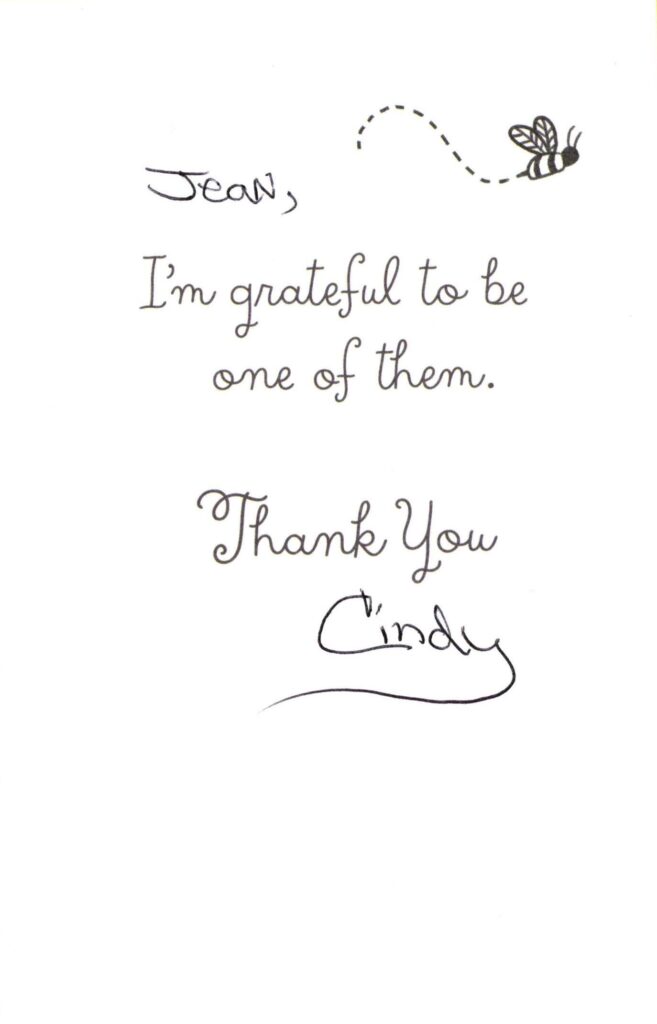 Jean,
I'm grateful to be
one of them.
Thank You
Cindy